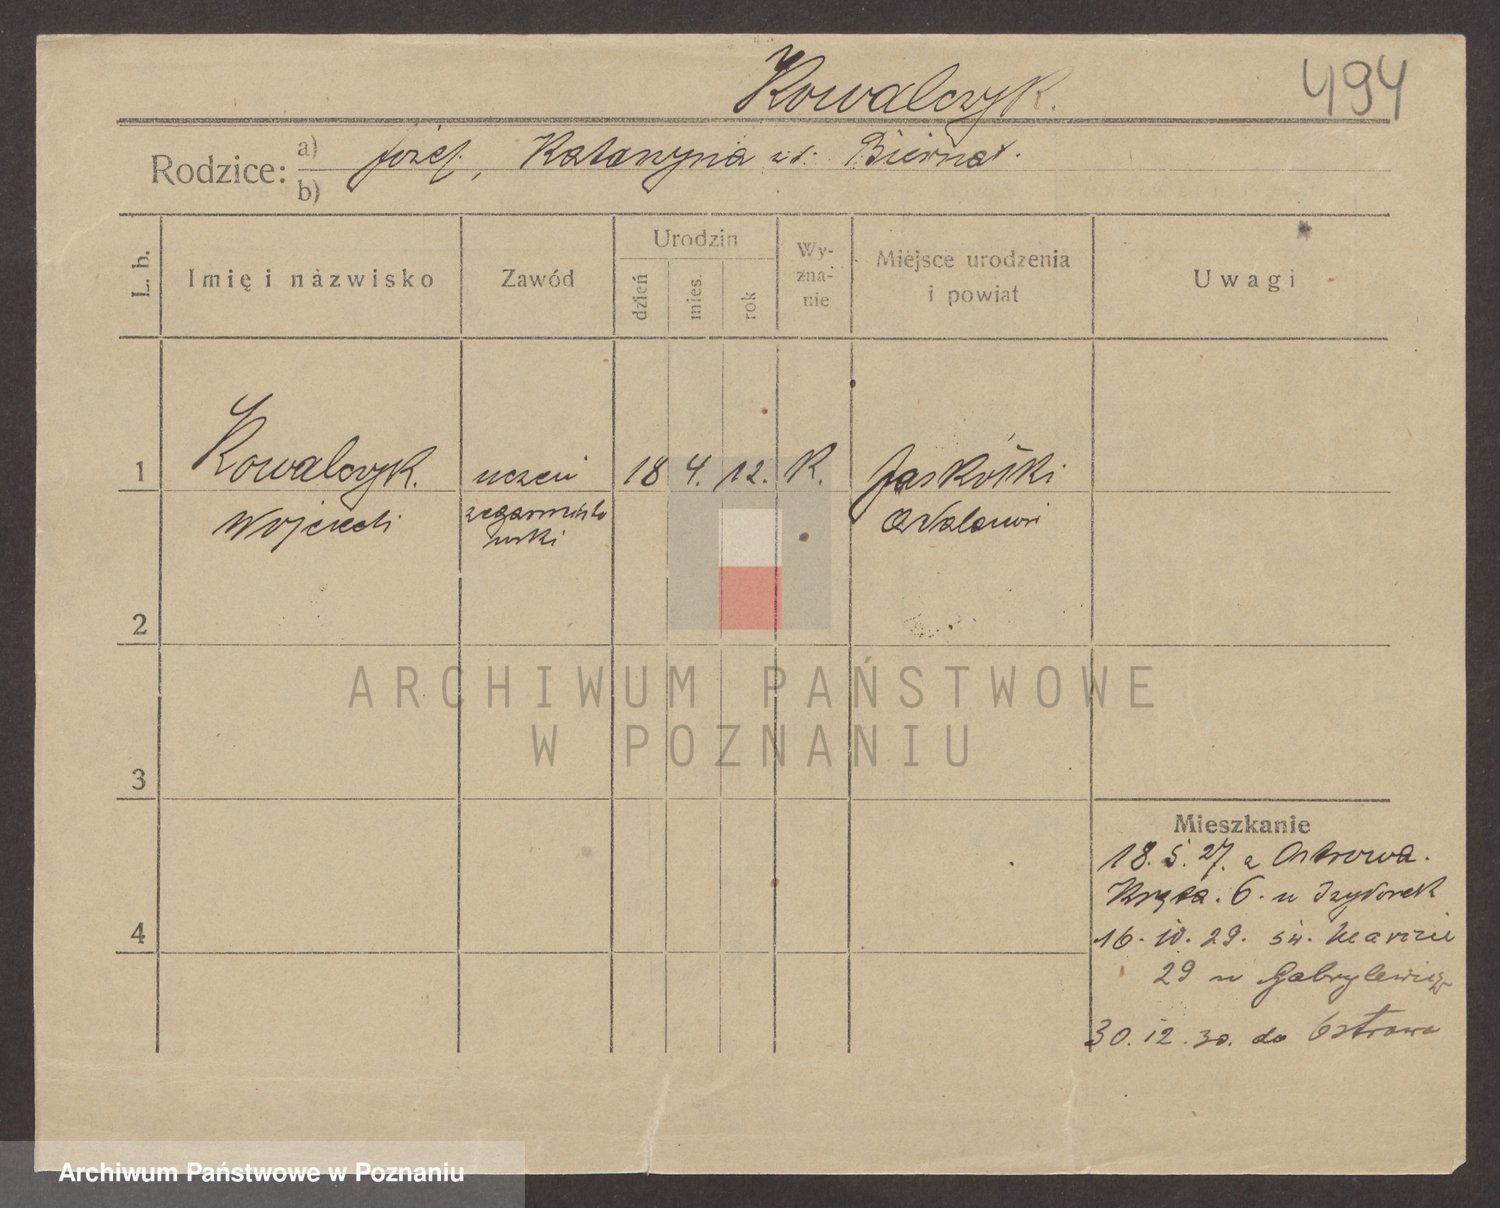 Kowalczyk.
494
Rodzice: a) b)
Józef, Katarzyna z d. Biernat.
L. b.
Imię i nazwisko
Zawód
Urodzin
dzień
mies.
rok
Wy-
zna-
nie
Miejsce urodzenia
i powiat
Uwagi
1
Kowalczyk.
Wojciech
uczeń
zegarmistrz
owski
18
4.
12.
K.
Jaskółki
2
3
4
Mieszkanie
18. 5. 27. z Ostrowa.
Kręta. 6. u Izydorek
16. 10. 29. św. Marcin
29 u Gabrylewicz
30. 12. 30. do Ostrowa
ARCHIWUM PAŃSTWOWE
W POZNANIU
Archiwum Państwowe w Poznaniu